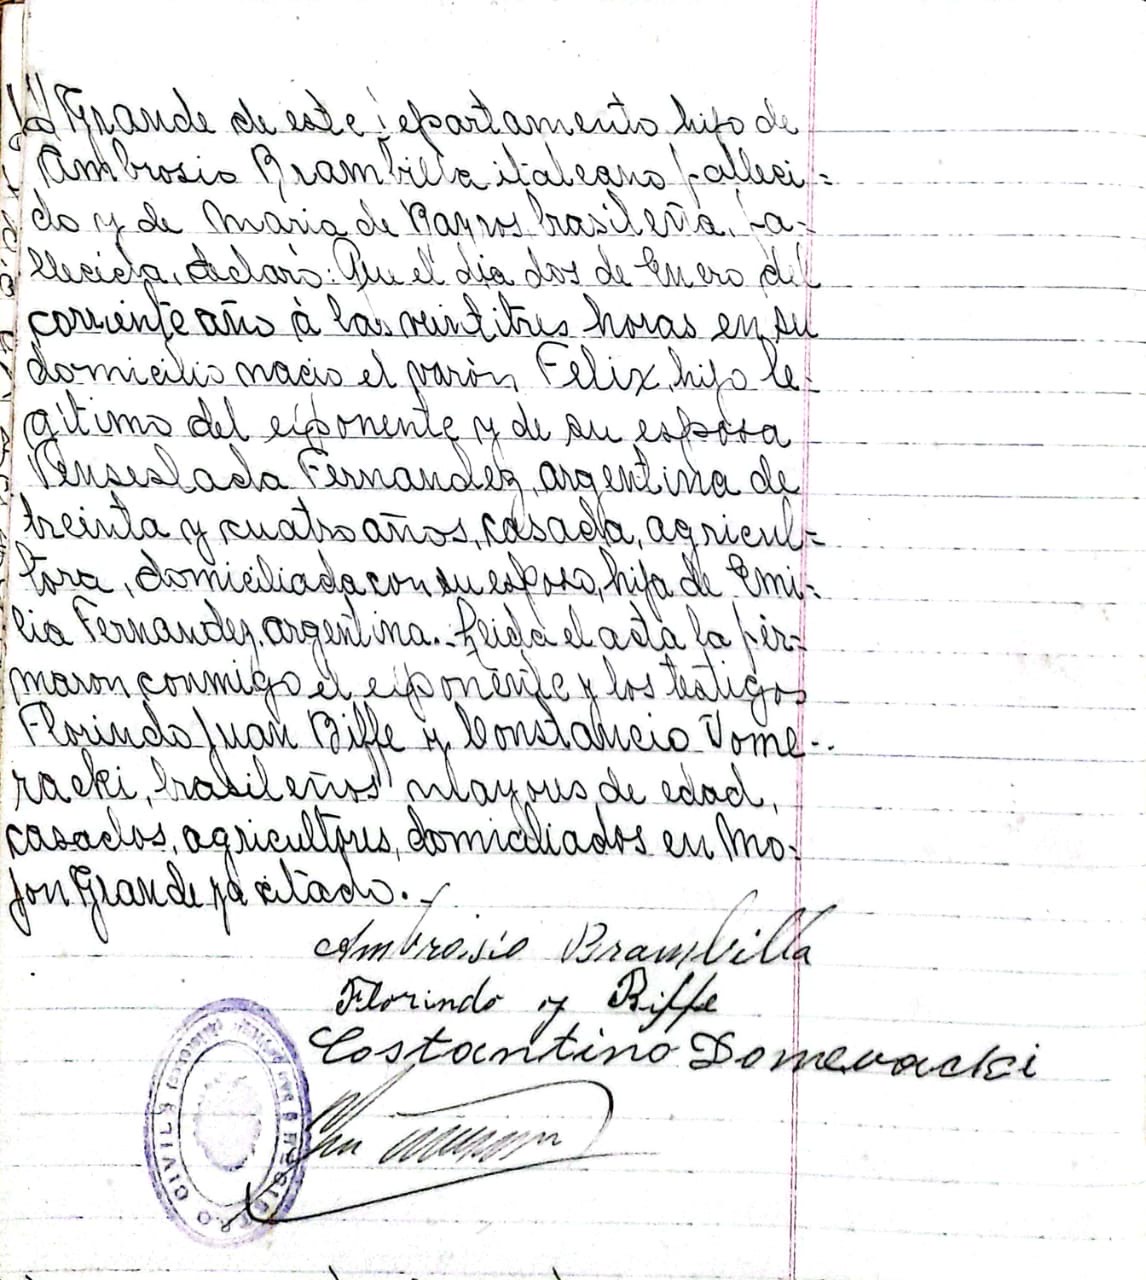 Grande de este departamento hijo de
Ambrosio Brambilla italiano falleci=
do y de Maria de Bayros brasileña, fa=
llecida, declaró: Que el dia dos de Enero del
corriente año á las veintitres horas en su
domicilio nacio el varón Felix, hijo le=
gitimo del exponente y de su esposa
Venseslada Fernandez, argentina de
treinta y cuatro años, casada, agricul=
tora, domiciliada con su esposo, hija de Emi=
lia Fernandez, argentina.- Leida el acta la fir=
maron conmigo el exponente y los testigos
Florindo Juan Biffe y Constancio Dome=
racki, brasileños mayores de edad,
casados, agricultores, domiciliados en Mo=
jon Grande ya citado.-
Ambrosio Brambilla
Florindo y Biffe
Costantino Domeracki
REGISTRO CIVIL